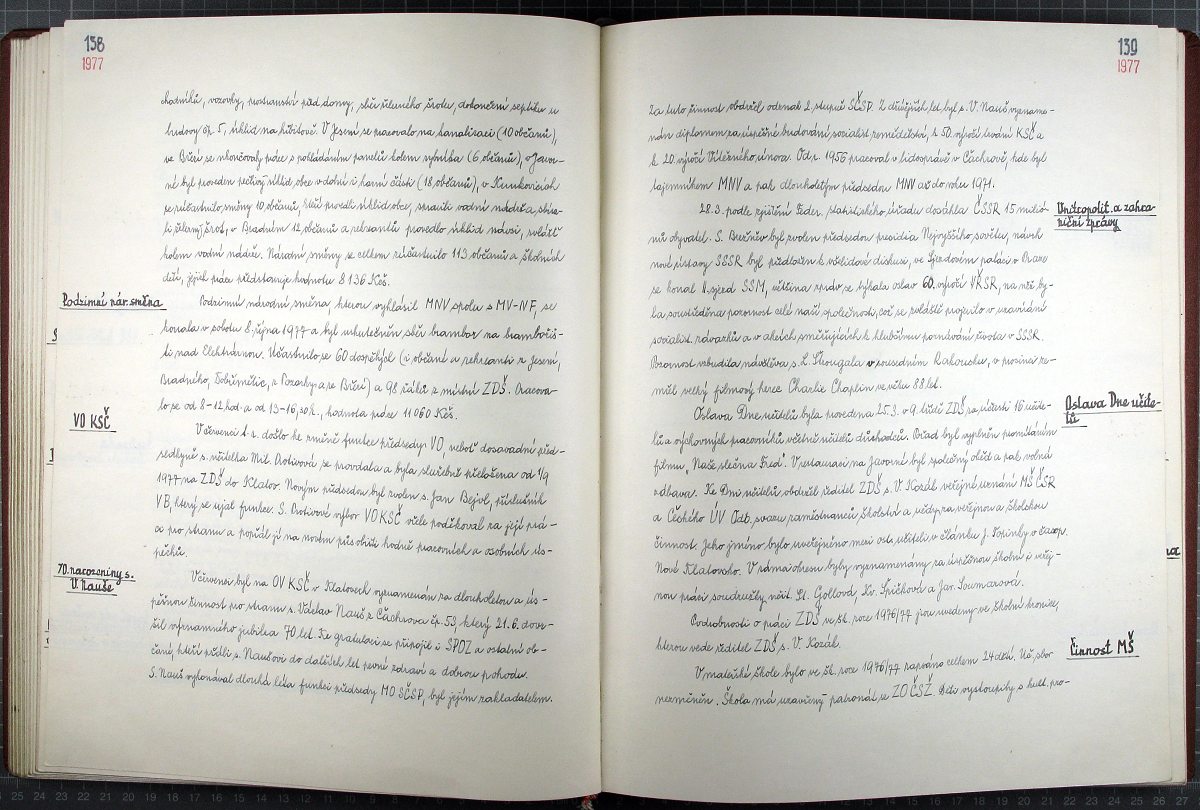 138
1977
chodníků, vozovky, prostranství před domy, sběr železného šrotu, dokončení septiku u
budovy čp. 5, úklid na hřbitově. V Jesení se pracovalo na kanalizaci (10 občanů),
ve Březí se ukončovaly práce s pokládáním panelů kolem rybníka (6 občanů), v Javor-
né byl proveden pečlivý úklid obce v dolní i horní části (18 občanů), v Kunkovicích
se zúčastnilo směny 10 občanů, kteří provedli úklid obce, spravili vodní nádrž a sbíra-
li železný šrot, v Bradném 12 občanů a rekreantů provedlo úklid návsi, zvláště
kolem vodní nádrže. Národní směny se celkem zúčastnilo 113 občanů a školních
dětí, jejich práce představuje hodnotu 8 136 Kčs.
Podzimní nár. směna
Podzimní národní směna, kterou vyhlásil MNV spolu s MV-NF, se
konala v sobotu 8. října 1977 a byl uskutečněn sběr brambor na bramboriš-
ti nad Elektrárnou. Účastnilo se 60 dospělých (i občané a rekreanti z Jesení,
Bradného, a ze Březí) a 98 žáků z místní ZDŠ. Pracova-
lo se od 8-12 hod. a od 13-16,30 h., hodnota práce 11 060 Kčs.
VO KSČ
V červenci t. r. došlo ke změně funkce předsedy VO, neboť dosavadní před-
sedkyně s. učitelka Mil. Protivová se provdala a byla služebně přeložena od 1/9
1977 na ZDŠ do Klatov. Novým předsedou byl zvolen s. Jan Bejvl, příslušník
VB, který se ujal funkce. S. Protivové výbor VO KSČ vřele poděkoval za její prá-
ci pro stranu a popřál jí na novém působišti hodně pracovních a osobních ús-
pěchů.
70. narozeniny s.
V. Nauše
V červenci byl na OV KSČ v Klatovech vyznamenán za dlouholetou a ús-
pěšnou činnost pro stranu s. Václav Nauš z Čachrova čp. 53, který 21. 6. dovr-
šil významného jubilea 70 let. Ke gratulaci se připojil i SPOZ a ostatní ob-
čané, kteří přáli s. Naušovi do dalších let pevné zdraví a dobrou pohodu.
S. Nauš vykonával dlouhá léta funkci předsedy MO SČSP, byl jejím zakladatelem.
139
1977
Za tuto činnost obdržel odznak 2. stupně SČSP. Z dřívějších let byl s. V. Nauš vyzname-
nán diplomem za úspěšné budování socialist. zemědělství, k 50. výročí trvání KSČ a
k 20. výročí Vítězného února. Od r. 1956 pracoval v lidosprávě v Čachrově, kde byl
tajemníkem MNV a pak dlouholetým předsedou MNV až do roku 1971.
Vnitropolit. a zahra-
niční zprávy
28.3. podle zjištění Feder. statistického úřadu dosáhla ČSSR 15 milió-
nů obyvatel. S. Brežněv byl zvolen předsedou presidia Nejvyššího sovětu, návrh
nové ústavy SSSR byl předložen k všelidové diskusi, ve Sjezdovém paláci v Praze
se konal II. sjezd SSM, většina zpráv se týkala oslav 60. výročí VŘSR, na něž by-
la soustředěna pozornost celé naší společnosti, což se zvláště projevilo v uzavírání
socialist. závazků a v akcích směřujících k hlubšímu poznávání života v SSSR.
Pozornost vzbudila návštěva s. L. Štrougala v sousedním Rakousku, v prosinci ze-
mřel velký filmový herec Charlie Chaplin ve věku 88 let.
Oslava Dne učite-
lů
Oslava Dne učitelů byla provedena 25.3. v 9. třídě ZDŠ za účasti 16 učite-
lů a výchovných pracovníků včetně učitelů důchodců. Pořad byl vyplněn promítáním
filmu „Naše slečna Fred“. V restauraci na Javorné byl společný oběd a pak volná
zábava. Ke Dni učitelů obdržel ředitel ZDŠ s. V. Kozák veřejné uznání MŠ ČSR
a Českého ÚV Odb. svazu zaměstnanců školství a vědy za veřejnou a školskou
činnost. Jeho jméno bylo uveřejněno mezi ost. učiteli v článku J. Topinky v časop.
Nové Klatovsko. V rámci okresu byly vyznamenány za úspěšnou školní i veřej-
nou práci soudružky učit. Gollová, Kv. Špičková a Jar. Soumarová.
Podrobnosti o práci ZDŠ ve šk. roce 1976/77 jsou uvedeny ve školní kronice,
kterou vede ředitel ZDŠ s. V. Kozák.
Činnost MŠ
V mateřské škole bylo ve šk. roce 1976/77 zapsáno celkem 24 dětí. Uč. sbor
nezměněn. Škola má uzavřený patronát se ZO ČSŽ. Děti vystoupily s kult. pro-